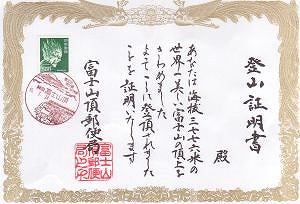 登山証明書
殿
あなたは海抜三七七六米の
世界一美しい富士山の頂上を
きわめました
よってここに登頂されました
ことを証明いたします
富士山頂郵便局
富士山頂